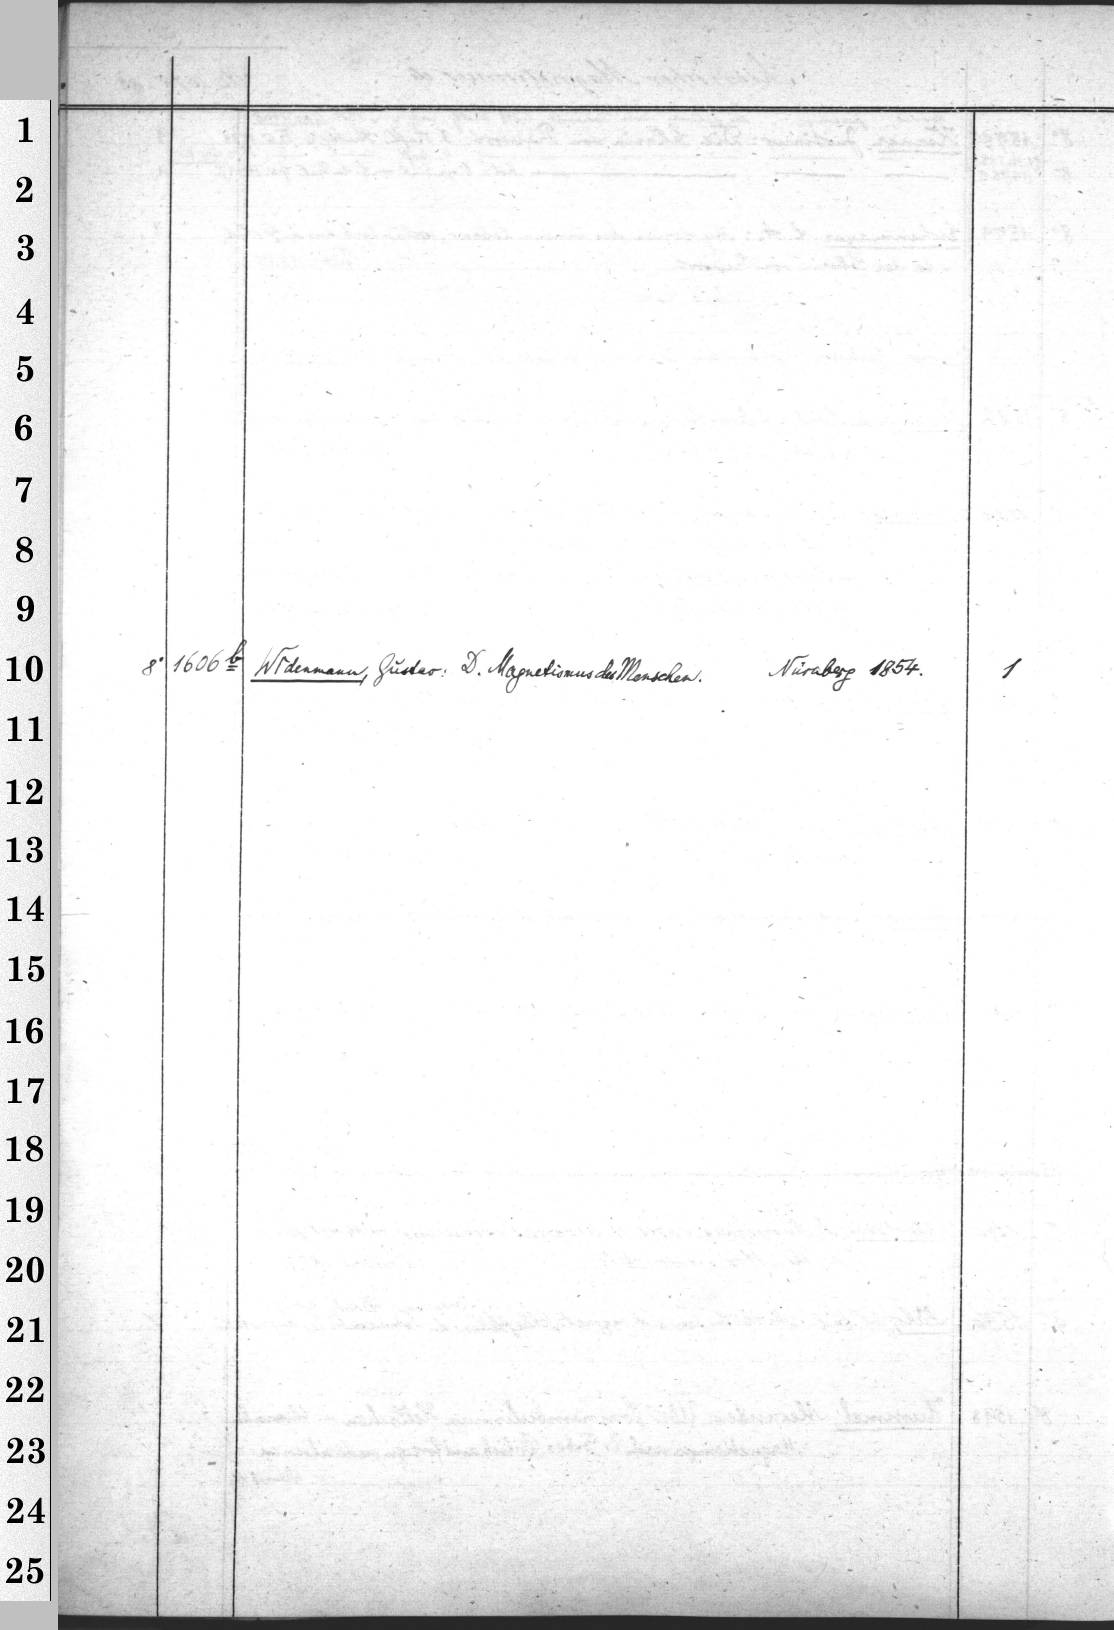 1
2
3
4
5
6
7
8
9
10
8° 1606 b Widenmann, Gustav: D. Magnetismus des Menschen. Nürnberg 1854. 1
11
12
13
14
15
16
17
18
19
20
21
22
23
24
25